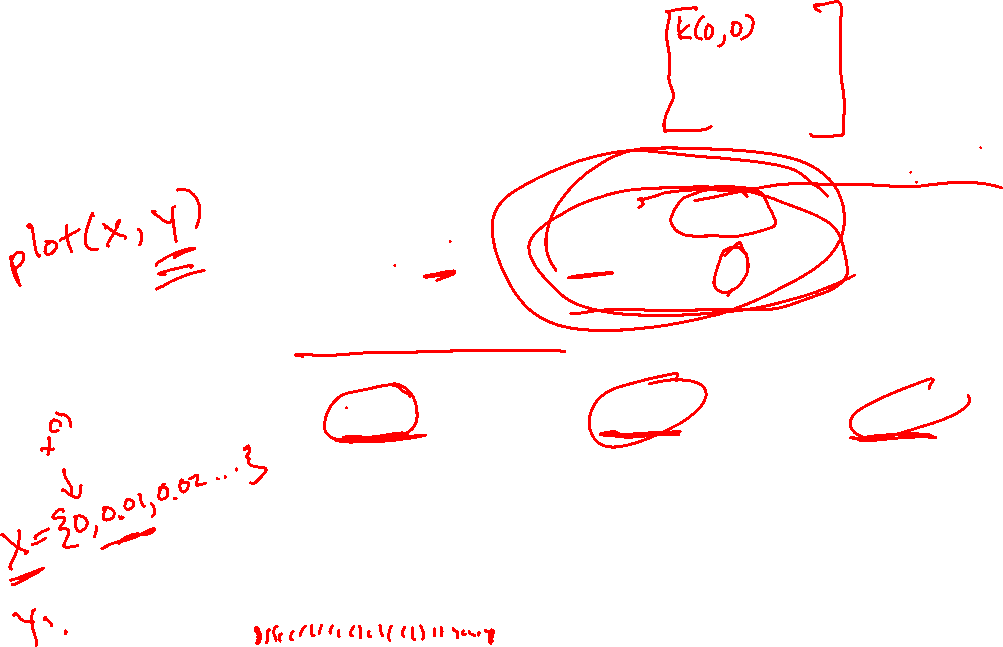 k(0,0)
plot(X, Y)
X={0, 0.01, 0.02...}
Y: